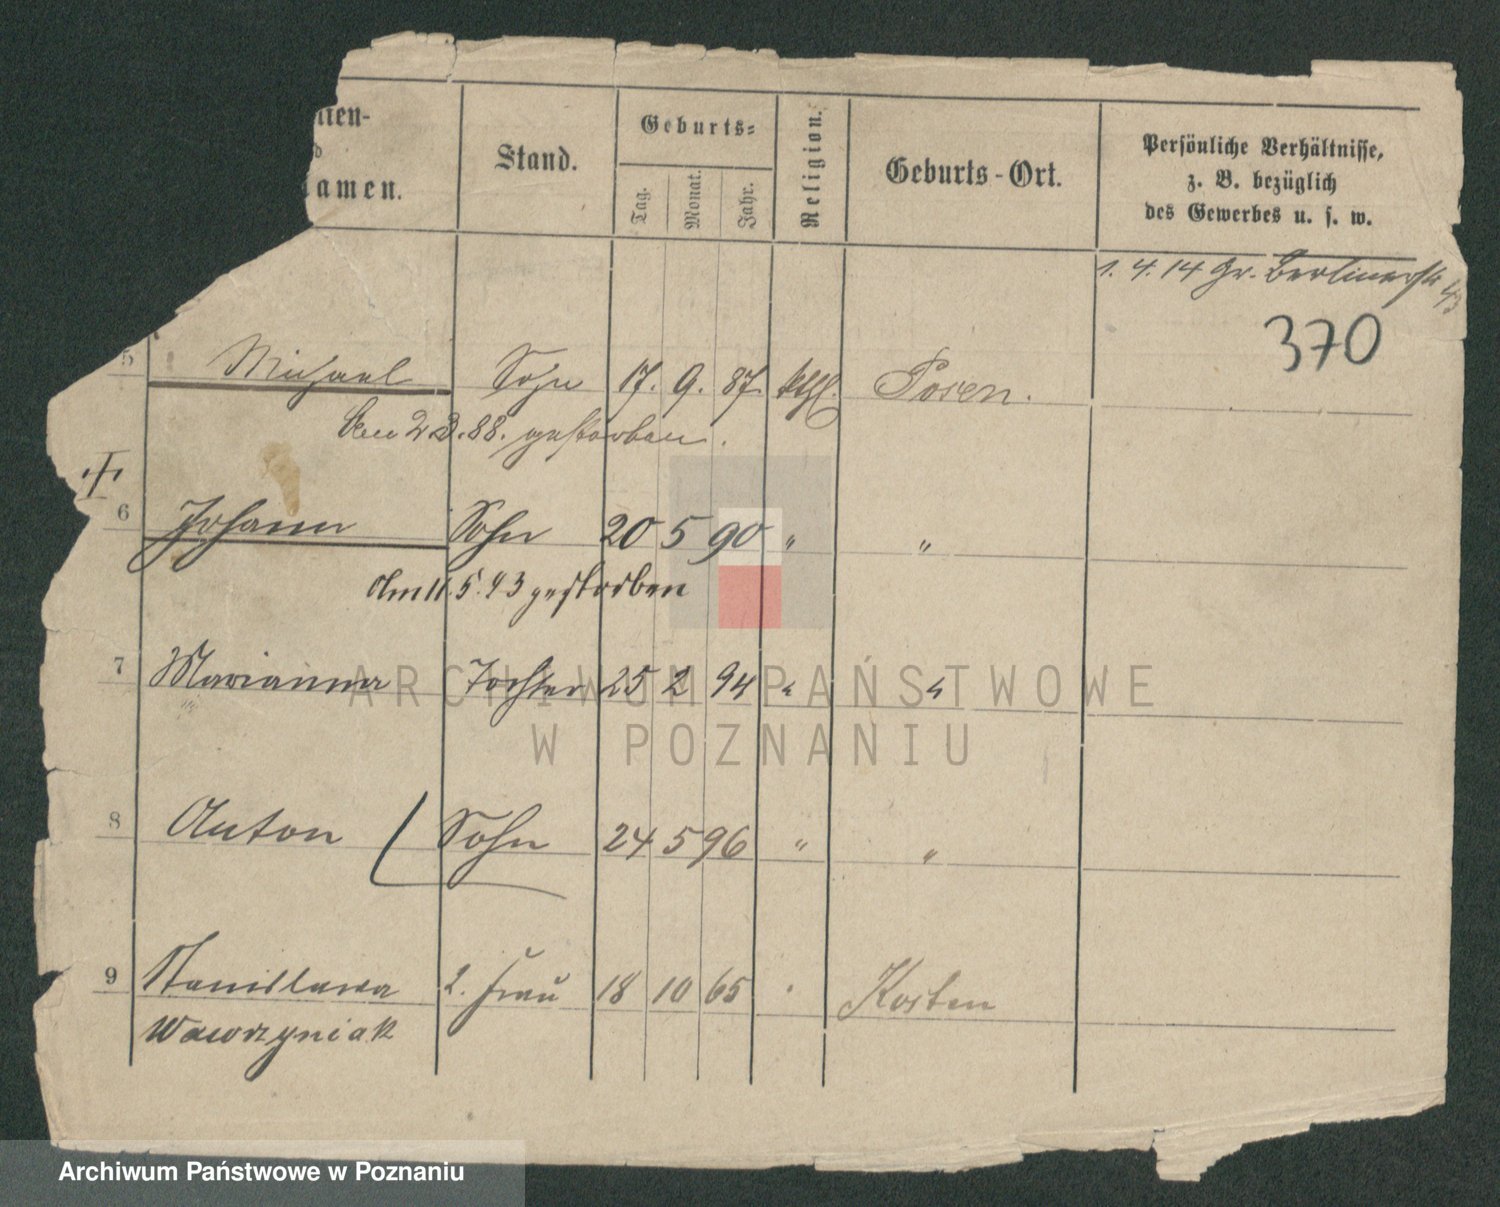 nen-
d
amen.
Stand.
Geburts=
Tag.
Monat.
Jahr.
Religion.
Geburts-Ort.
Persönliche Verhältnisse,
z. B. bezüglich
des Gewerbes u. s. w.
1. 4. 14 Gr. Berlinerstr 43
370
5 Michael Sohn 17. 9. 87. kthl. Posen.
88. gestorben.
6 Johann Sohn 20 5 90 " "
Am 11. 5. 93 gestorben
7 Marianna Tochter 25 2 94 " "
8 Anton Sohn 24 5 96 " "
9 Stanislawa 2. Frau 18 10 65 " Kosten
Wawrzyniak
ARCHIWUM PAŃSTWOWE
W POZNANIU
Archiwum Państwowe w Poznaniu